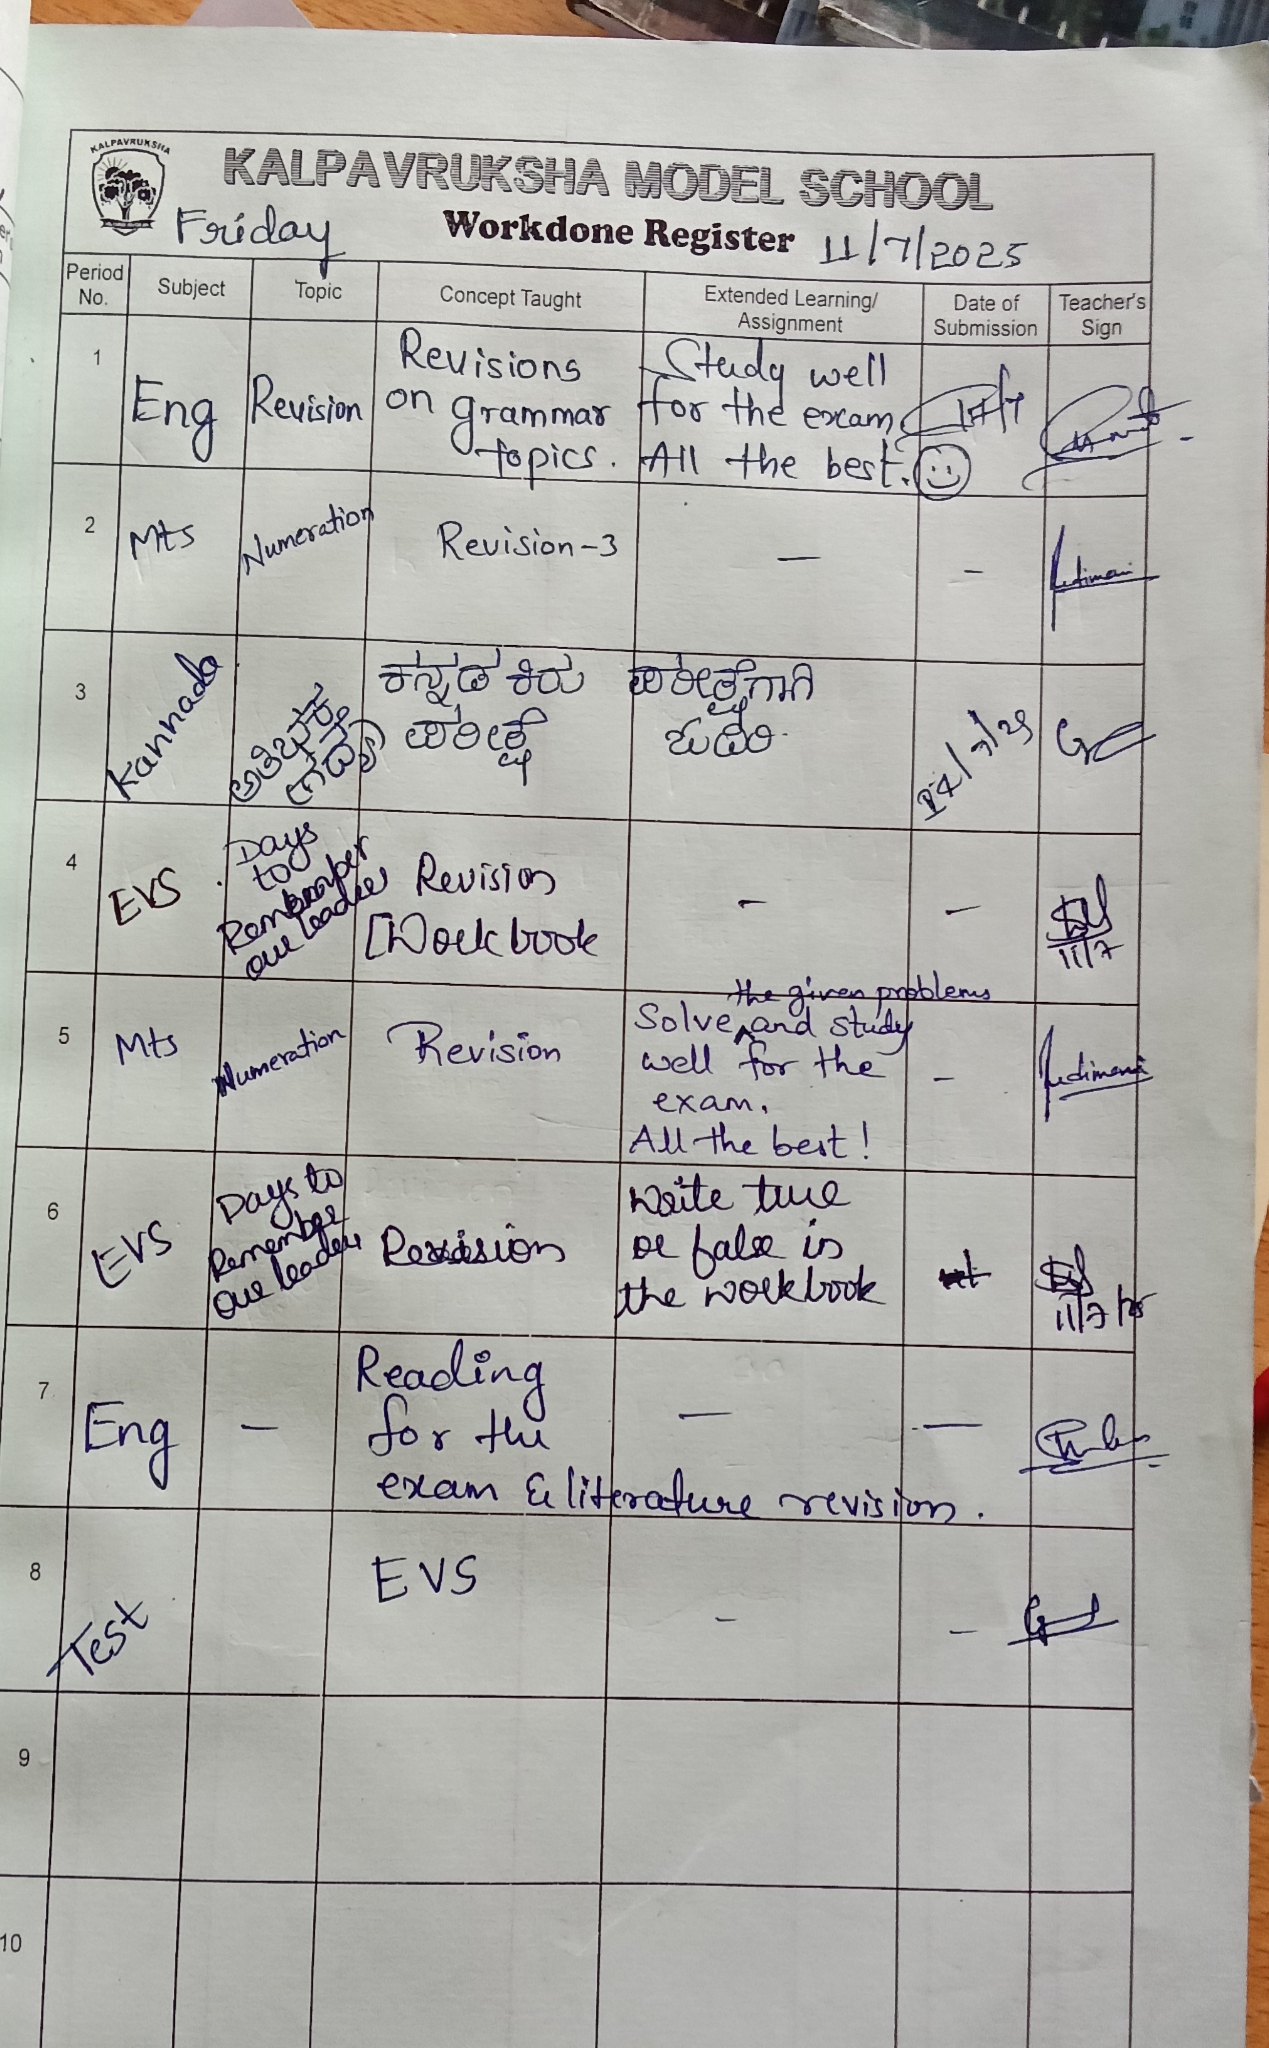 KALPAVRUKSHA
KALPAVRUKSHA MODEL SCHOOL
Friday Workdone Register 11/7/2025
Period No. Subject Topic Concept Taught Extended Learning/ Assignment Date of Submission Teacher's Sign
1
Eng
Revision
Revisions
on grammar
topics.
Study well
for the exam
All the best.
17/7
2
Mts
Numeration
Revision-3
—
–
3
Kannada
ಗದ್ಯ
ಕನ್ನಡ ಕಿರು
ಪರೀಕ್ಷೆ
ಪರೀಕ್ಷೆಗಾಗಿ
ಓದಿರಿ.
4
EVS
Days
to
Remember
our leaders
Revision
[Workbook
-
–
11/7
5
Mts
Numeration
Revision
the given problems
Solve ^ and study
well for the
exam.
All the best!
–
6
EVS
Days to
Remember
our leaders
Revision
Write true
or false in
the workbook
11/7/25
7
Eng
—
Reading
for the
exam & literature revision.
—
—
8
Test
EVS
–
–
9
10